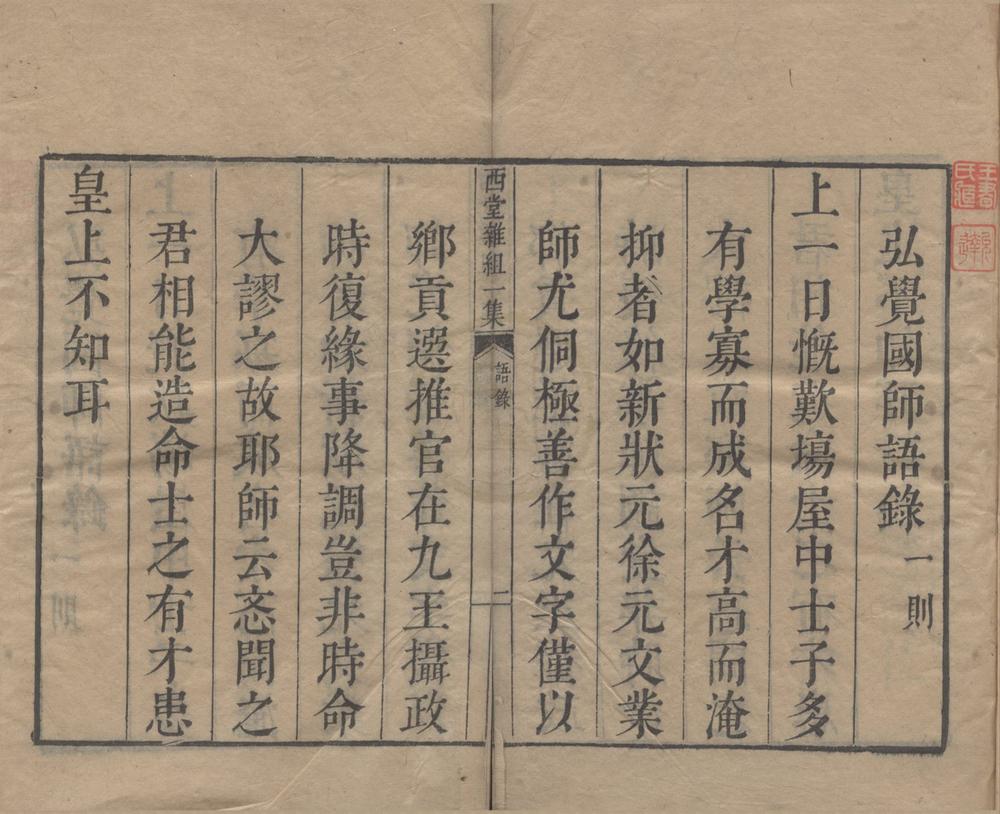 弘覺國師語錄一則
上一日慨歎塲屋中士子多
有學寡而成名才高而淹
抑者如新狀元徐元文業
師尤侗極善作文字僅以
西堂雜組一集 語錄 二
鄉貢選推官在九王攝政
時復緣事降調豈非時命
大謬之故耶師云忞聞之
君相能造命士之有才患
皇上不知耳